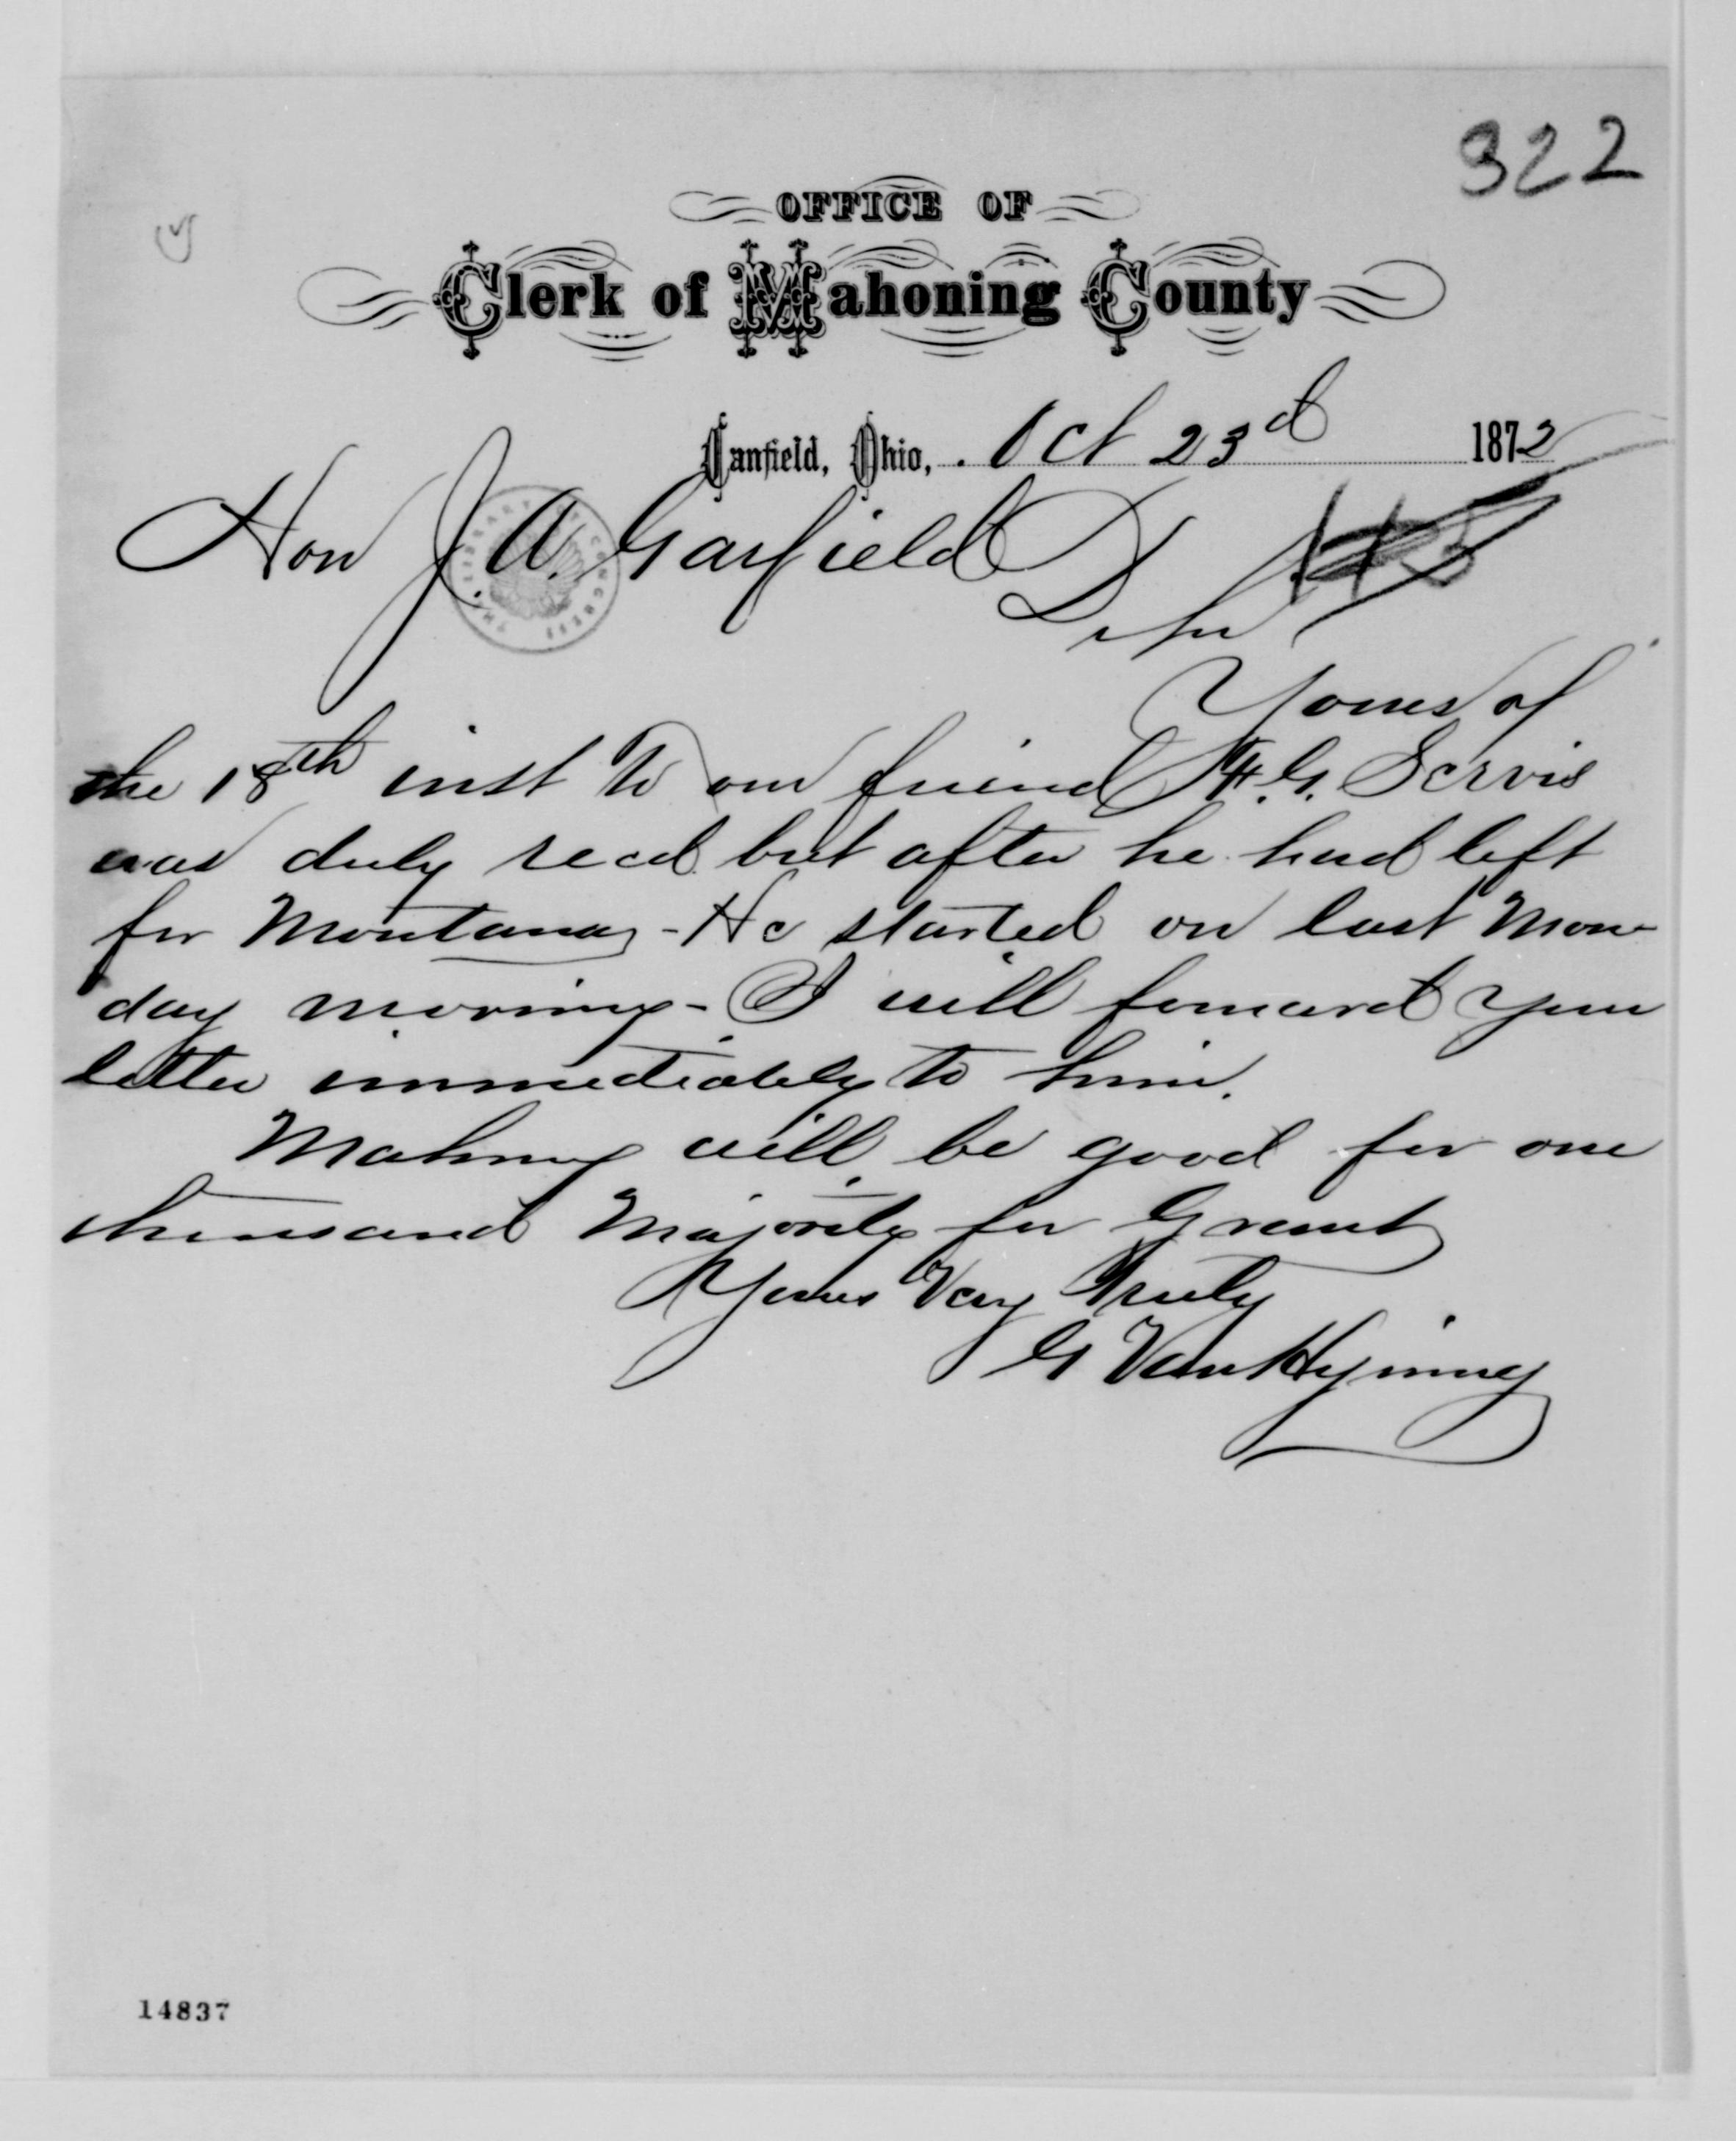 322
OFFICE OF
Clerk of Mahoning County
Canfield, Ohio, Oct 23d 1872
Hon J. A. Garfield
THE LIBRARY OF CONGRESS
D Sir
Yours of
the 18th inst to our friend F. G. Servis
was duly recd. but after he had left
for Montana - He started on last Mon-
day morning - I will forward your
letter immediately to him.
Mahning will be good for one
thousand Majority for Grant
Yours Very Truly
G Van Hyning
14837